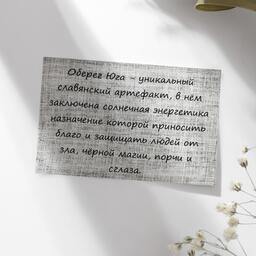 Оберег Юга - уникальный
славянский артефакт, в нём
заключена солнечная энергетика
назначение которой приносить
благо и защищать людей от
зла, чёрной магии, порчи и
сглаза.